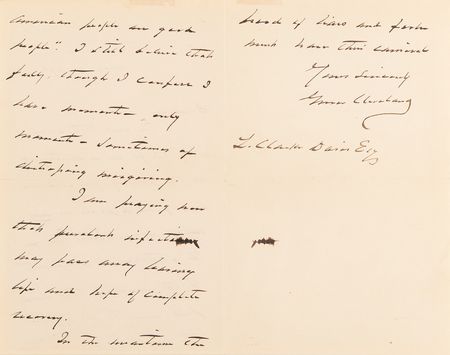 American people are good
people". I still believe that
fully, though I confess I
have moments – only
moments – sometimes of
distressing misgiving.
I am praying now
that present infection
may pass away leaving
life and hope of complete
recovery.
In the meantime the
brood of liars and fools
must have their carnival
Yours sincerely
Grover Cleveland
L. Clarke Davis Esq